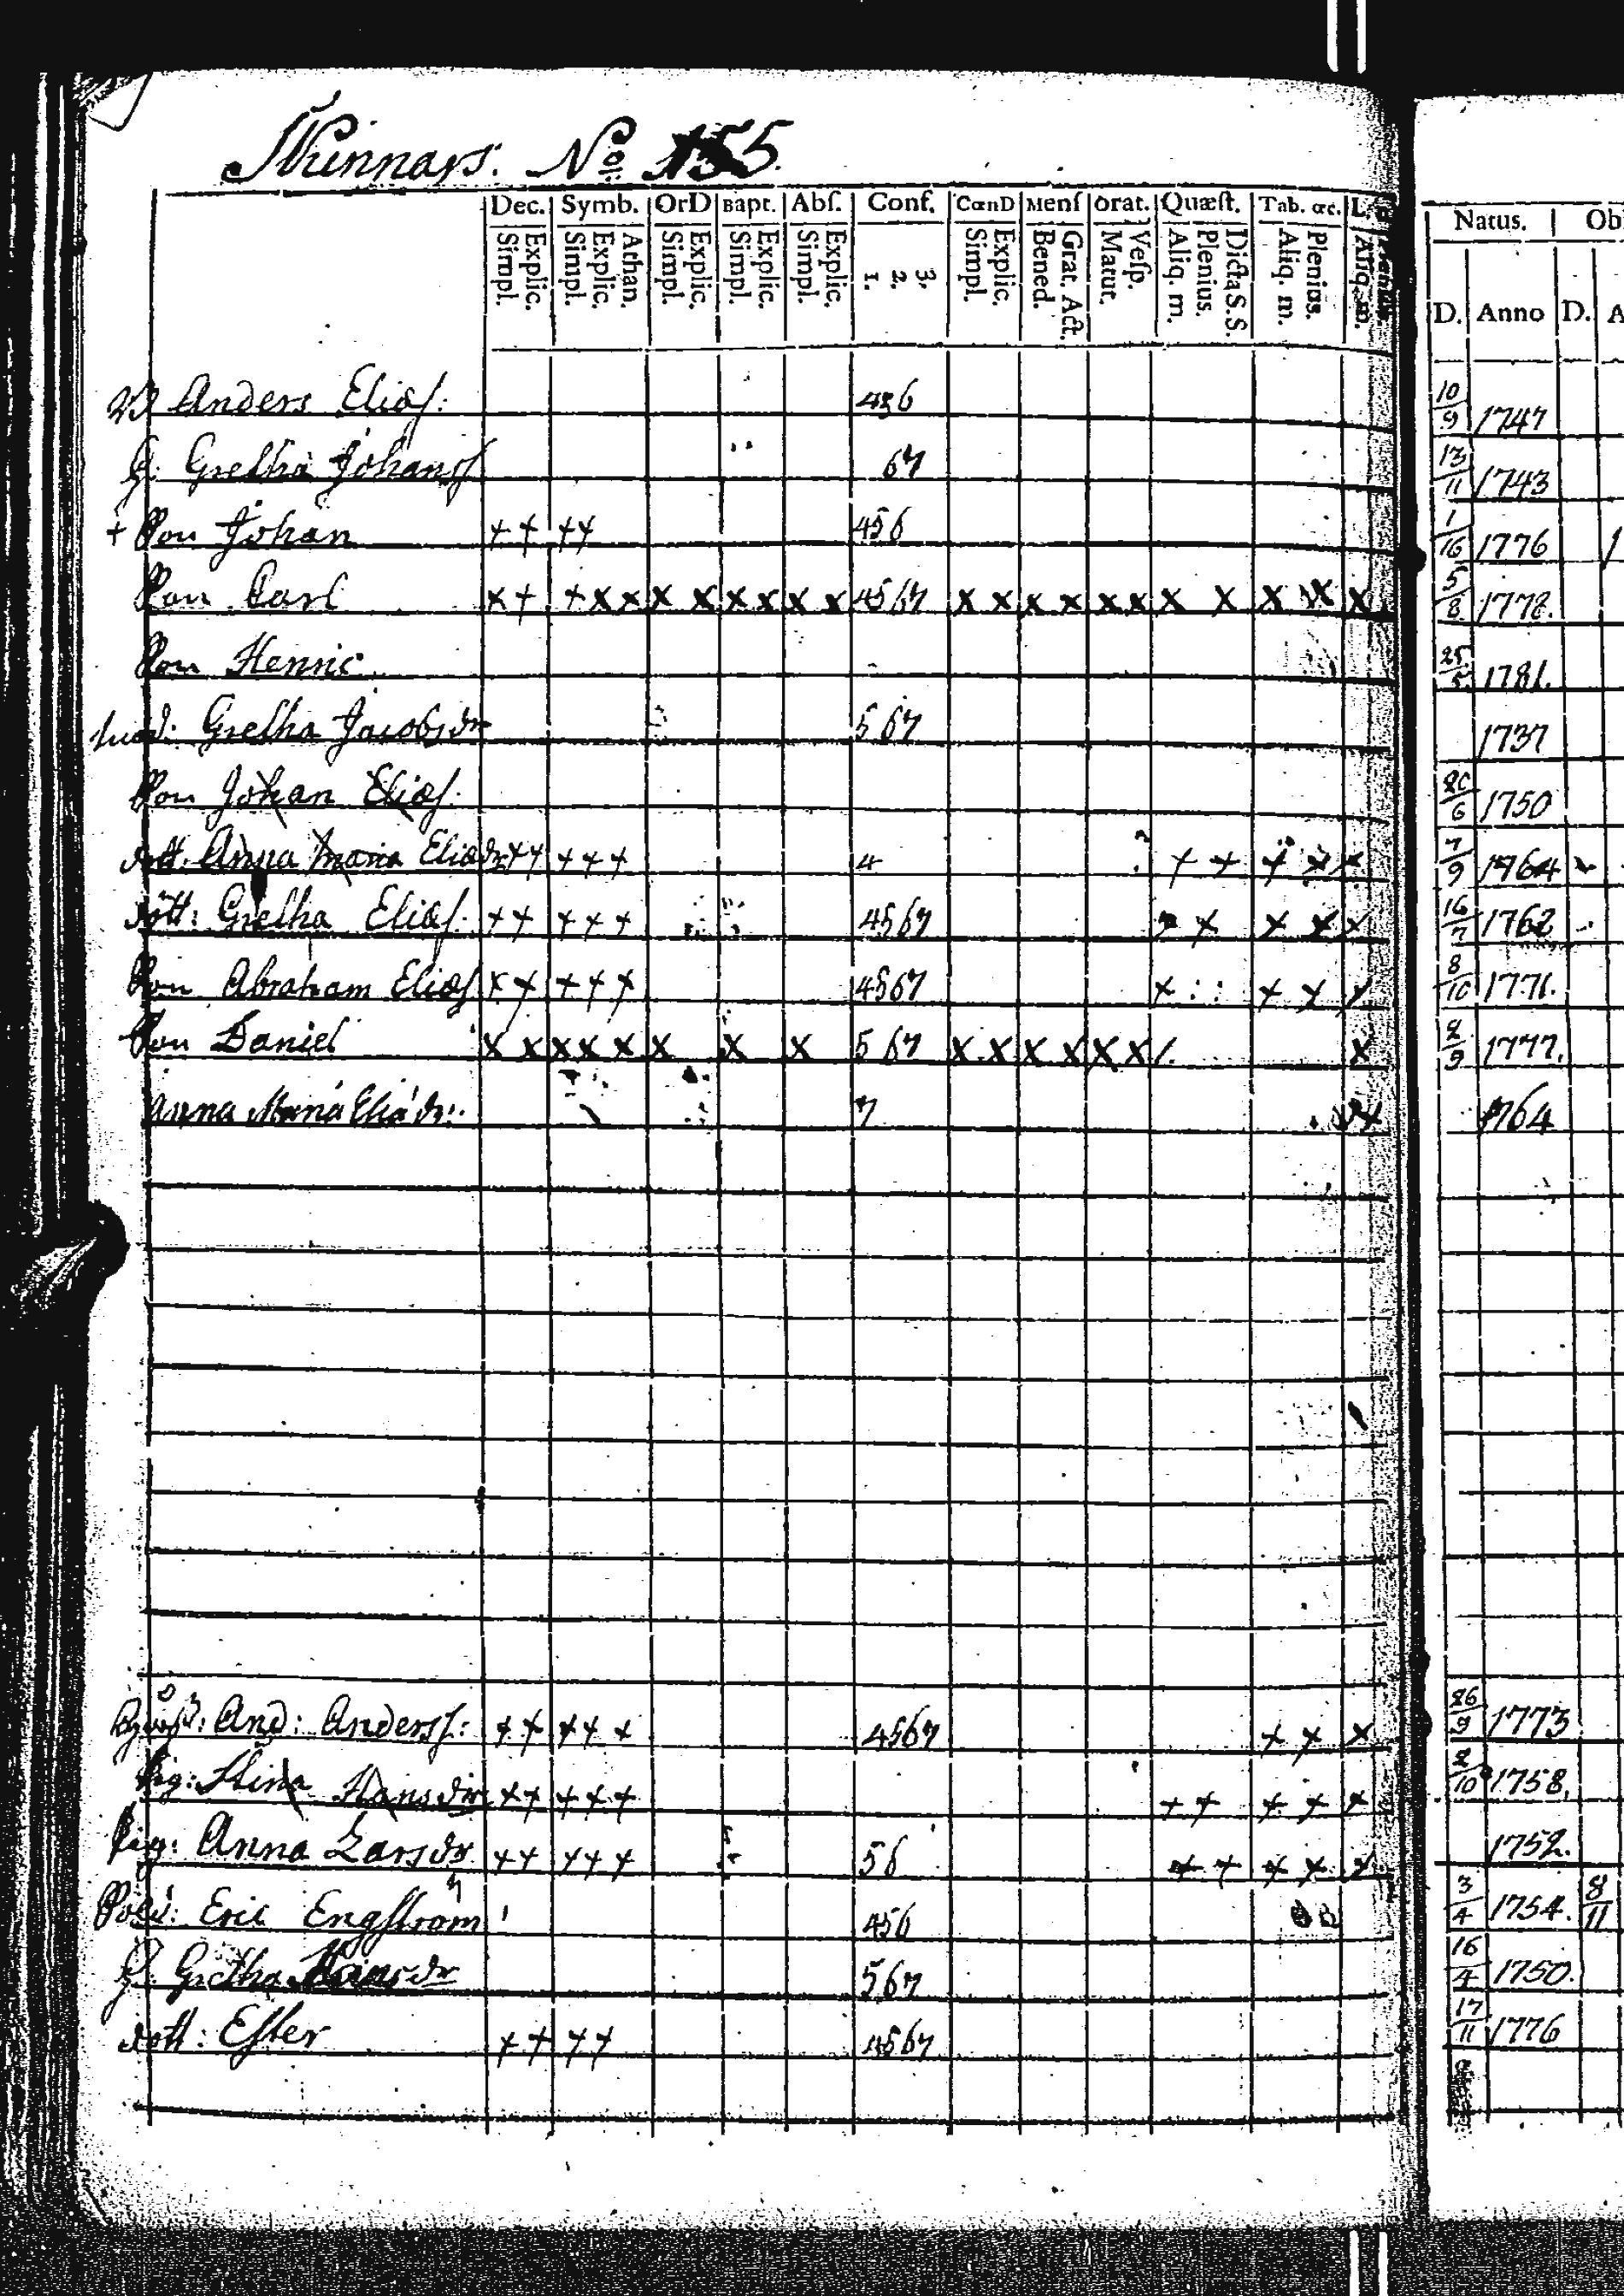 Skinnars. No 155.
Dec. Symb. OrD Bapt. Abſ. Conf. CœnD Menſ Orat. Quæſt. Tab. œc. Natus. Ob
Explic. Simpl. Athan. Explic. Simpl. Explic. Simpl. Explic. Simpl. Explic. Simpl. 3. 2. 1. Explic. Simpl. Grat. Act. Bened. Veſp. Matut. Dicta S. S. Plenius. Aliq. m. Plenius. Aliq. m. Aliq. m. D. Anno D. A
Anders Elias: 456 10/9 1747
H: Gretha Johans 67 13/11 1743
+ Son Johan ++ ++ 456 1/16 1776
Son Carl x+ +xx x x xx x x 4567 x x x x xx x x x x x 5/8 1778.
Son Henric 25/5 1781.
Gretha Jacobsdr 567 1737
Son Johan Elias: 6 1750
dott. Anna Maria Eliædr ++ +++ 4 + + + + x 7/9 1764
dött: Gretha Elias. ++ +++ 4567 x x x x 16/7 1762
Son Abraham Elias x+ +++ 4567 x : : + x 8/10 1771.
Son Daniel x x x x x x x x 567 x x x x x x x 2/9 1777.
Anna Maria Eliædr:. 7 1764
And: Anderss: ++ +++ 4567 + + x 26/9 1773
Pig: Stina Hansdr ++ +++ ++ + + x 2/10 1758.
Pig: Anna Larsdr ++ +++ 56 + + + + x 1752.
Eric Engström 456 3/4 1754. 8/11
H. Gretha 567 16/4 1750.
dott: Ester ++ ++ 4567 17/11 1776